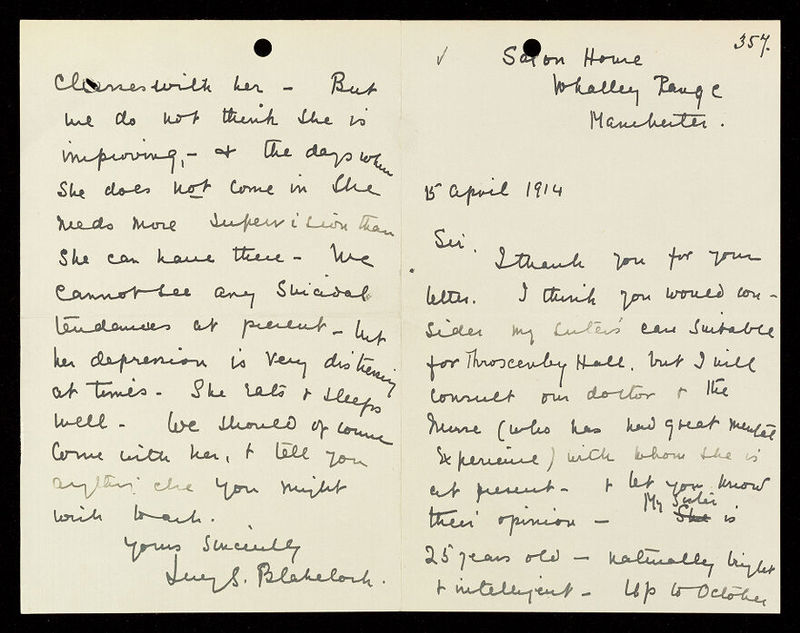 357.
✓
Salon Home
Whalley Range
Manchester.
15 April 1914
Sir,
I thank you for your
letter. I think you would con-
sider my sister's case suitable
for Throscenby Hall, but I will
consult our doctor & the
Nurse (who has had great mental
experience) with whom she is
at present - & let you know
their opinion - My Sister
She is
25 years old - naturally bright
& intelligent - Up to October
Classes with her - But
we do not think she is
improving, - & the days when
she does not come in she
needs more supervision than
she can have there - We
cannot see any Suicidal
tendencies at present - but
her depression is very distressing
at times - She eats & sleeps
well - We should of course
come with her, & tell you
anything else you might
wish to ask.
Yours Sincerely
Lucy S. Blakelock.